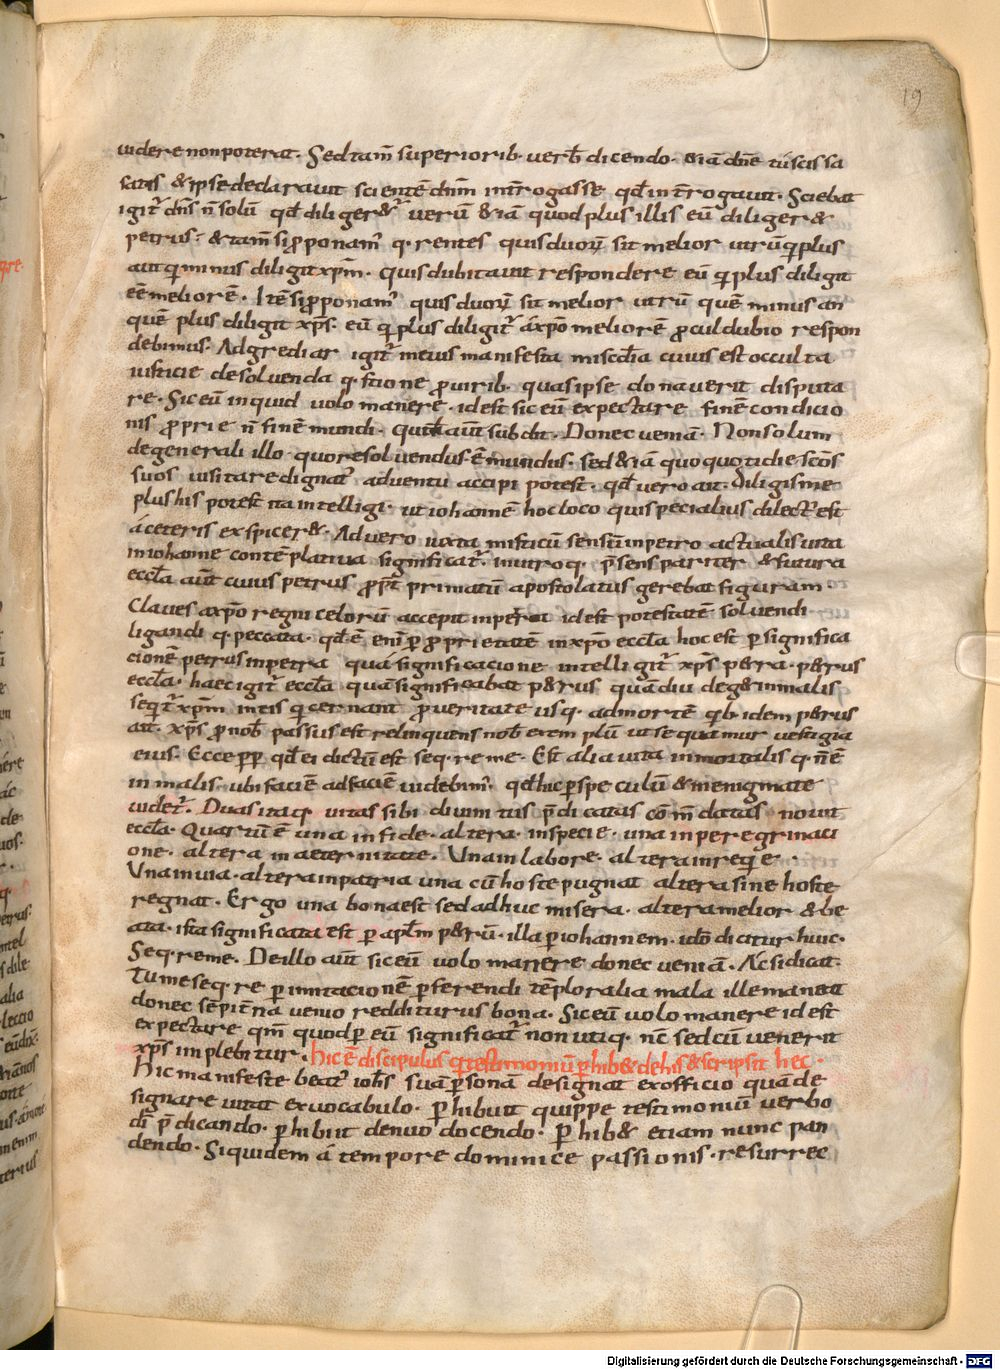 19
uidere non poterat. Sed tam̄ superiorib. uerb̄ dicendo. &iā dn̄e tu scis sa
tatis & ipse declarauit scientē dn̄m int̄rogasse qđ int̄rogauit. Sciebat
igit̄ dn̄s n̄ solū qđ diliger&̄ uerū &iā quod plus illis eū diliger&
petrus. & tam̄ si ꝓponam̄ q. rentes quis duoꝝ sit melior utrū q̇ plus
aut q̇ minus diligit xp̄m. quis dubitauit respondere eū q̇ plus diligit
ēē meliorē. Itē si ꝓponam̄ quis duoꝝ sit melior utrū quē minus an
quē plus diligit xp̄s. eū q̇ plus diligit̄ á xp̄o meliorē ꝓculdubio respon
debimus. Adgrediar igit̄ meius manifesta miscđia cuius est occulta
iusticie de soluenda q.stione ꝓ uirib. quas ipse donauerit disputa
re. Sic eū inquid uolo manere. id est sic eū expectare finē condicio
nis ꝓprie n̄ finē mundi. aūt subdit. Donec ueniā. Non solum
de generali illo. quo resoluendus. ē mundus. sed &iā quo quotidie scōs
suos uisitare dignat̄ aduentu accipi potest. qđ uero ait. diligis me
plus his potest ita intelligi. ut iohannē hoc loco qui specialius dilect̄ est
á ceteris exspicer&. Ad uero iuxta misticū sensū in petro actualis uita
in iohanne contēplatiua significat̄. in utroq. p̄sens pariter & futura
eccl̄a aūt cuius petrus ꝓpt̄ primatū apostolatus gerebat figuram.
Claues á xp̄o regni celorū accepit in petra id est potestatē soluendi
ligandi q. peccata. qđ ē enī p̱ ꝓprietatē in xp̄o eccl̄a hoc est p̱ significa
cionē petrus in petra qua significacione intelligit̄ xp̄s petra. p&rus
eccl̄a. haec igit̄ eccl̄a quā significabat p&rus quādiu deg& in malis
seqit̄ xp̄m in eis qi cernant ꝓ ueritate usq. ad mortē qib. idem p&rus
ait. xp̄s ꝓ nob̄ passus est relinquens nob̄ exemplū ut sequamur uestigia
eius. Ecce ꝓp̱ qđ ei dictū est seq.re me. Est alia uita inmortalis q. n̄ ē
in malis. ubi faciē ad faciē uidebim̄. qđ hic p̱ speculū & in enigmate
uidet̄. Duas itaq. uitas sibi diuinitus p̄dicatas cōm̄datas nouit
eccl̄a. Quarū ē una in fide. altera in specie. una in peregrinaci
one. altera in aeternitate. Una in labore. altera in reqie.
Una in uia. altera in patria una cū hoste pugnat altera sine hoste
regnat. Ergo una bona est sed adhuc misera. altera melior & be
ata. ista significata est p̱ apl̄m p&rū. illa p̱ iohannem. idō dicitur huic.
Seq. re me. De illo aūt sic eū uolo manere donec ueniā. Ac si dicat.
Tu me seq. re p̱ imitacionē p̱ferendi tēploralia mala ille maneat
donec sēpit̄na uenio redditurus bona. Sic eū uolo manere id est
expectare qm̄ quod p̱ eū significat̄ non utiq. nc̄ sed cū uenerit
xp̄s implebitur. hic ē discipulus qi testimoniū p̱hib& de his & scripsit hec.
Hic manifeste beat̄ ioh̄s suā p̱sonā designat ex officio quā de
signare uitat ex uocabulo. p̱hibuit quippe testimoniū uerbo
di p̄dicando. p̱hibuit denuo docendo. p̱hib& etiam nunc pan
dendo. Siquidem á tempore dominice passionis. resurrec
Digitalisierung gefördert durch die Deutsche Forschungsgemeinschaft - DFG